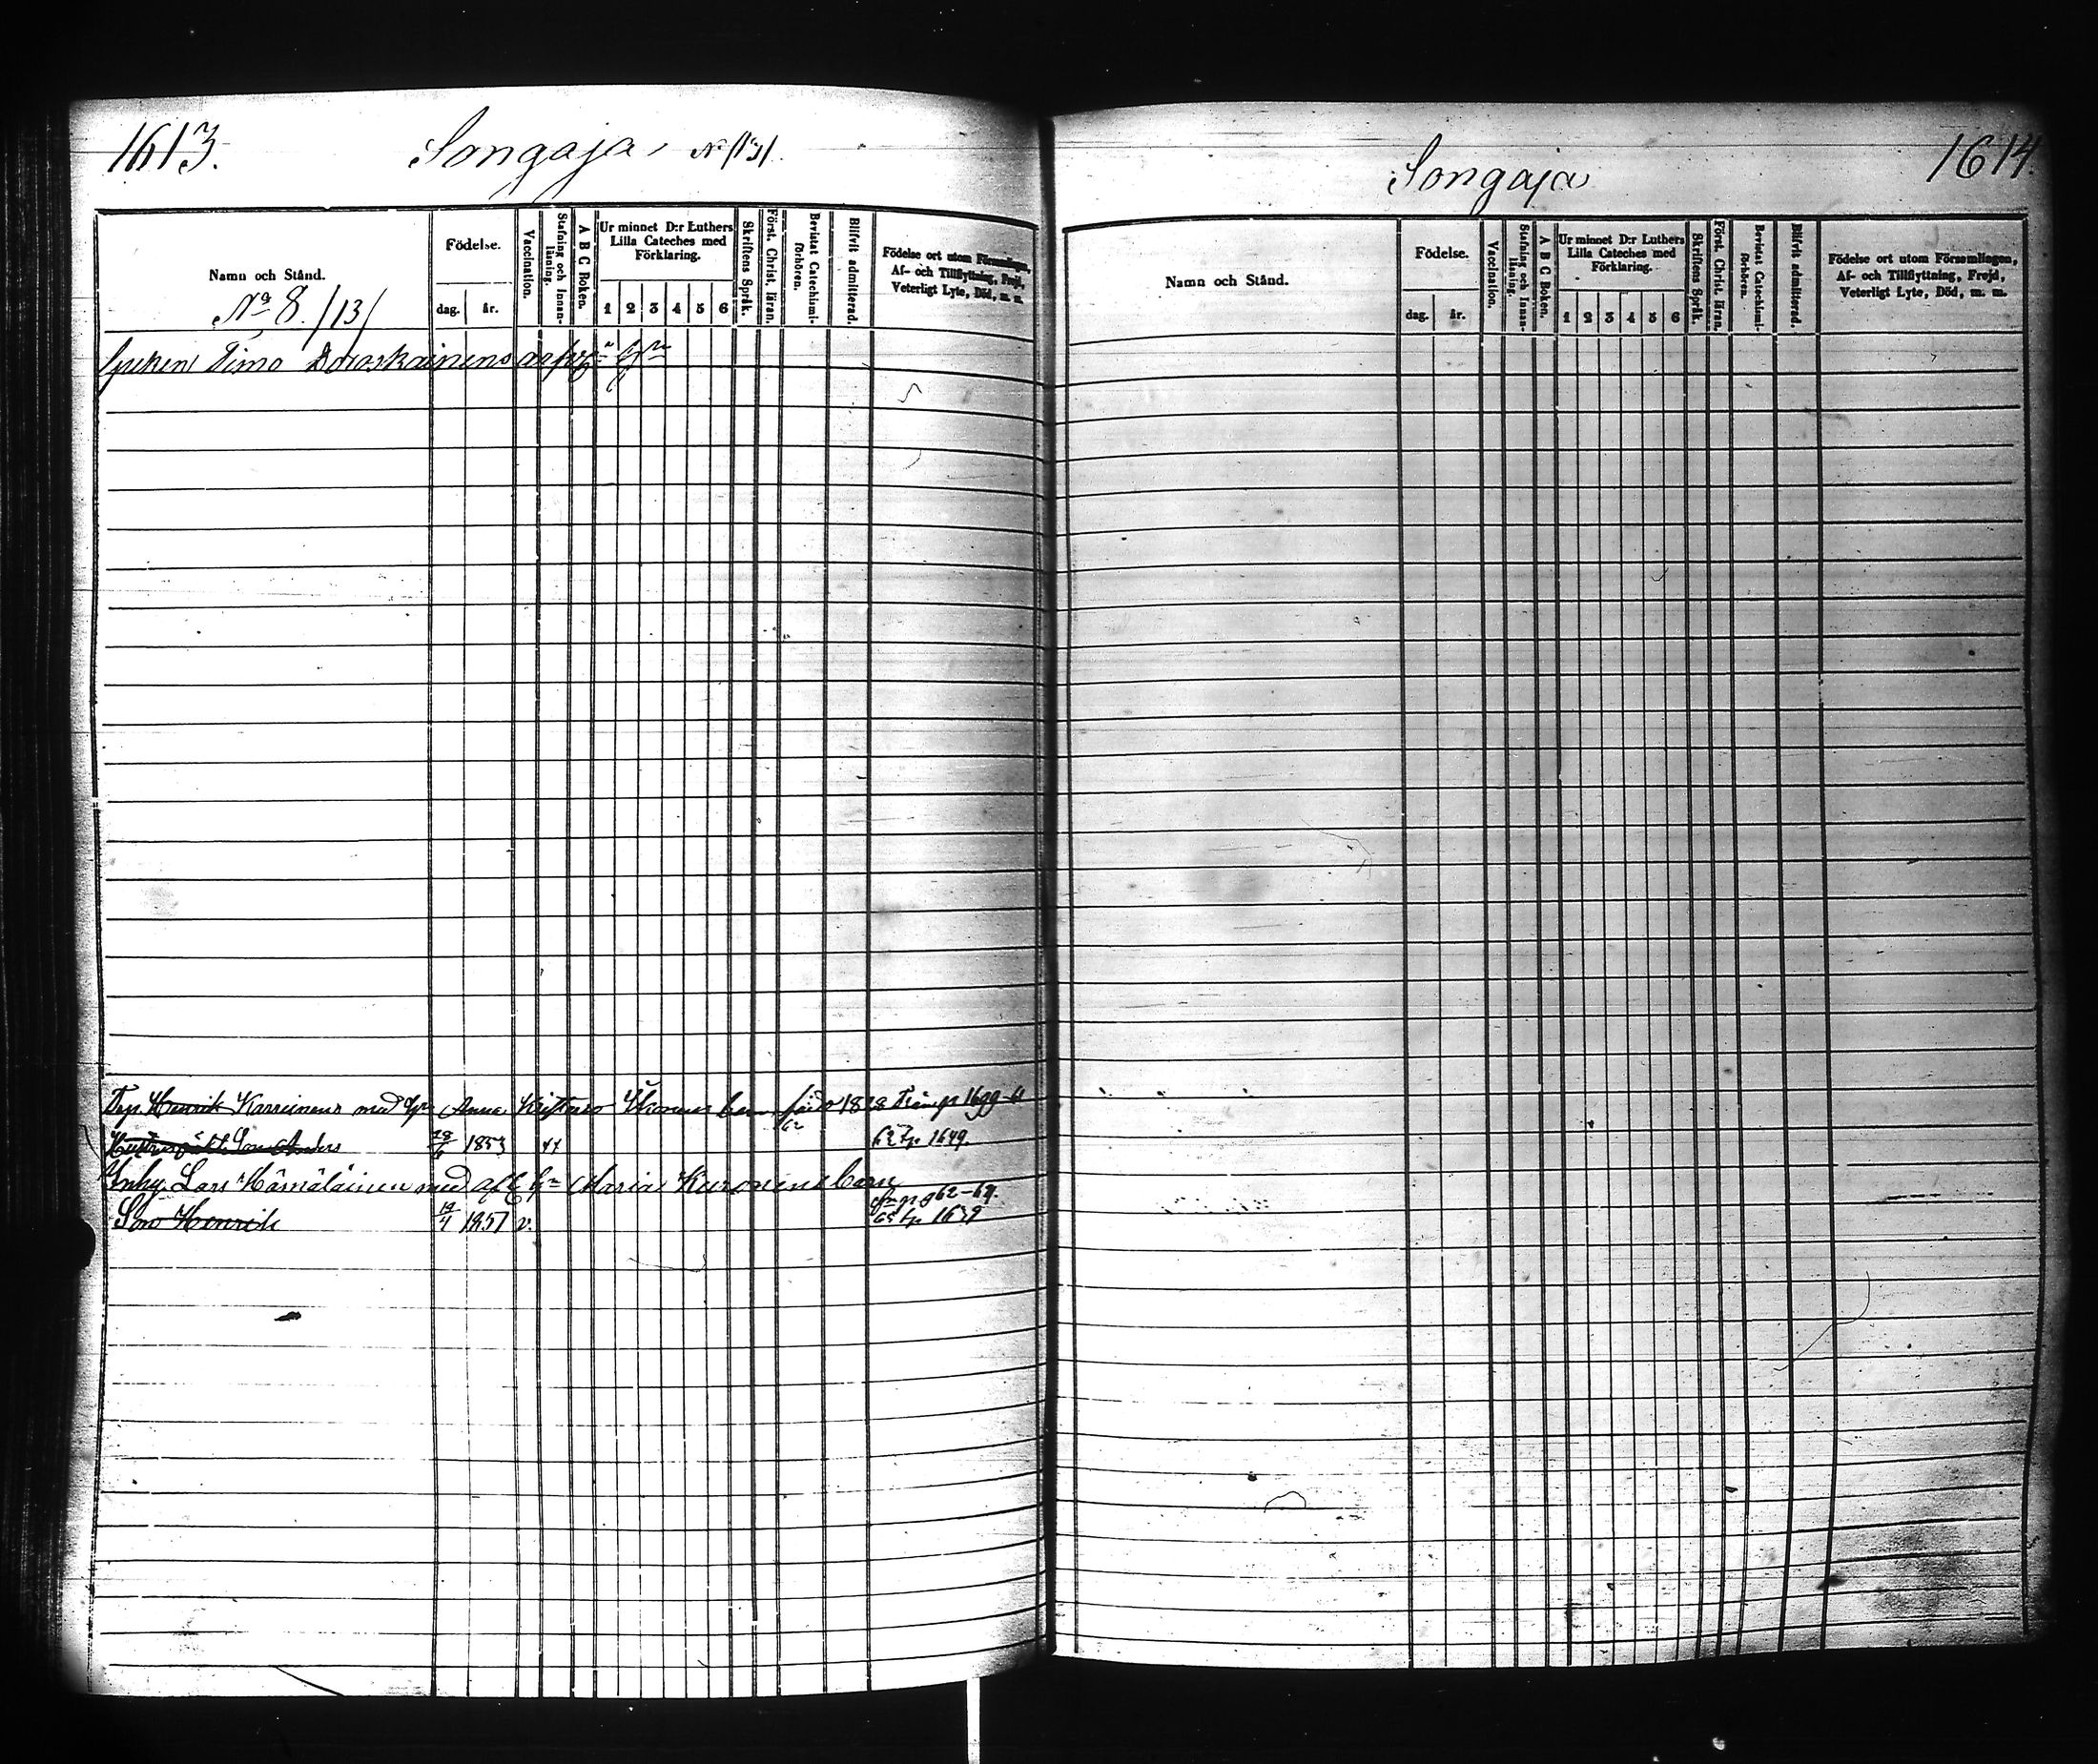 1613.
Songaja, No /13/.
Namn och Stånd.
No 8. /13/
Födelse.
dag. år.
Vaccination.
Stafning och Innanläsning.
A B C Boken.
Ur minnet D:r Luthers Lilla Cateches med Förklaring.
1 2 3 4 5 6
Skriftens Språk.
Först. Christ. läran.
Bevistat Catechismiförhören.
Blifvit admitterad.
Födelse ort utom Församlingen,
Af- och Tillflyttning, Frejd,
Veterligt Lyte, Död, m. m.
Timo
Henrik Karreinens med Anna barn 1828
Son Anders 1853 62 Fp. 1649.
Inhy. Lars Hämäläinen med Maria Kuronens barn
Son Henrik 19/4 1857 v. 62-69.
65 fp 1639
Songaja
1614.
Namn och Stånd.
Födelse.
dag. år.
Vaccination.
Stafning och Innanläsning.
A B C Boken.
Ur minnet D:r Luthers Lilla Cateches med Förklaring.
1 2 3 4 5 6
Skriftens Språk.
Först. Christ. läran.
Bevistat Catechismiförhören.
Blifvit admitterad.
Födelse ort utom Församlingen,
Af- och Tillflyttning, Frejd,
Veterligt Lyte, Död, m. m.